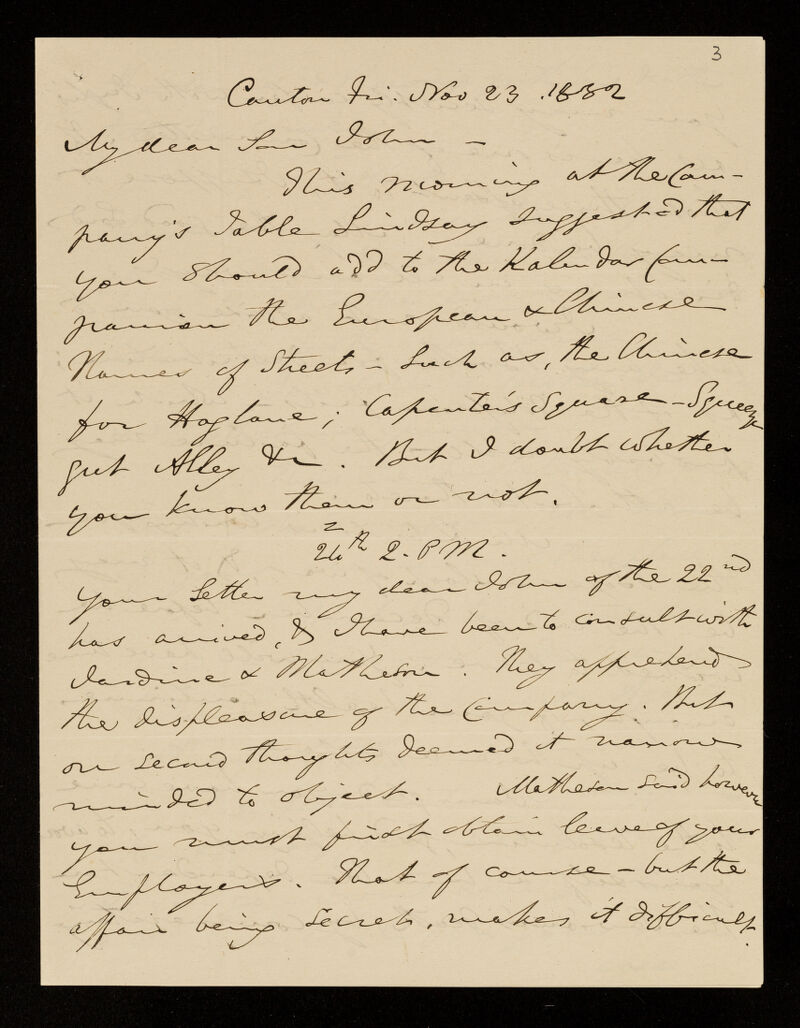 3
Canton Fri. Nov 23. 1832
My dear Son John -
This morning at the Com-
pany's Table Lindsay suggested that
you should add to the Kalendar Com-
panion the European & Chinese
Names of Streets - Such as, the Chinese
for Hoglane; Capenter's Square - Squeeze
gut Alley &c. But I doubt whether
you know them or not.
24th 2. P M.
Your Letter my dear John of the 22nd
has arrived, & I have been to consult with
Jardine & Matheson. They apprehend
the displeasure of the Company. But
on second thoughts deemed it narrow
minded to object. Matheson said however
you must first obtain leave of your
Employers. That of course - but the
affair being secret, makes it difficult.